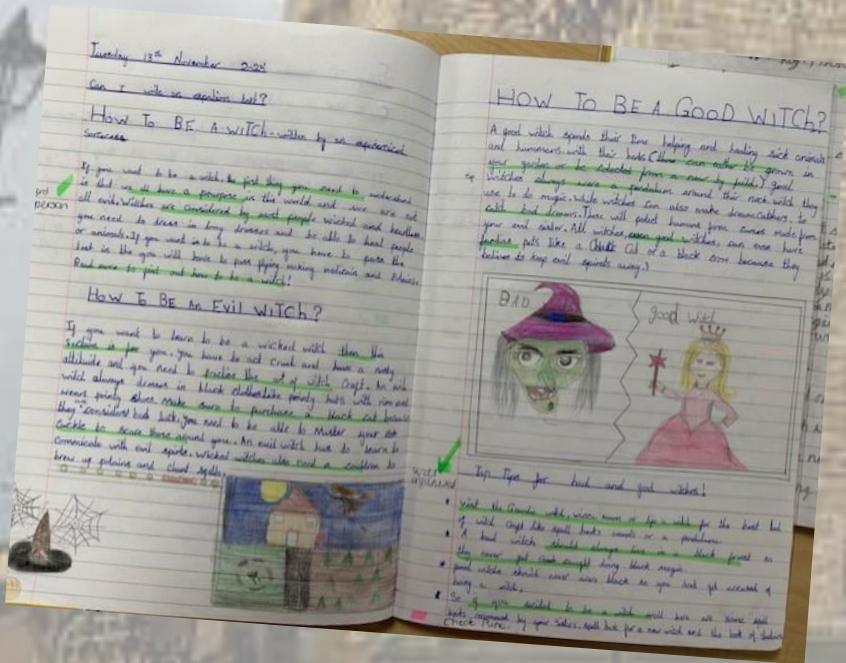 Tuesday 13th November
Can I write an
HOW TO BE A WITCH - written by an experienced
Sorceress
If you want to be a witch, the first thing you need to understand
is that we all have a pourpose in the world and we are not
all evil. Witches are considered by most people wicked and heartless.
you need to dress in long dresses and be able to heal people
or animals. If you want to be a witch, you have to pass the
test in the you will have to pass flying, making and
Read more to find out how to be a witch!
3rd
person
HOW TO BE AN EVIL WITCH?
If you want to learn to be a wicked witch then this
section is for you. You have to act cruel and have a nasty
attitude and you need to practise the art of witch craft. An
witch always dresses in black clothes like pointy hats with
pointy shoes. Make sure to purchase a black cat
they considerd bad luck. you need to be able to Master your
cackle to scare those around you. An evil witch has to learn to
comunicate with evil spirits. Wicked witches also need a
brew up potions and chant spells.
HOW TO BE A GOOD WITCH?
A good witch spends their time helping and healing sick animals
and with their herbs (these can either be grown in
your garden or be colected from a near by field.) good
sp
witches always wore a pendulum around their neck witch they
use to do magic. White witches can also make dream catchers, to
catch bad dreams. These will potect humans from made from
your evil sister. All witches, even good witches, can even have
pets like a Cat or a black because they
believe to keep evil spirits away.)
BAD
good witch
well
Top Tips for bad and good witches!
Visit the witch, or a witch for the best
of witch craft like spell books or a pendulum.
A bad witch should always live in a black forest so
they never get caught doing black magic.
good witches should never wear black so you dont get accused of
being a witch.
So if you decided to be a witch here are some spell
by your Sisters. spell book for a new witch and the book of
Check